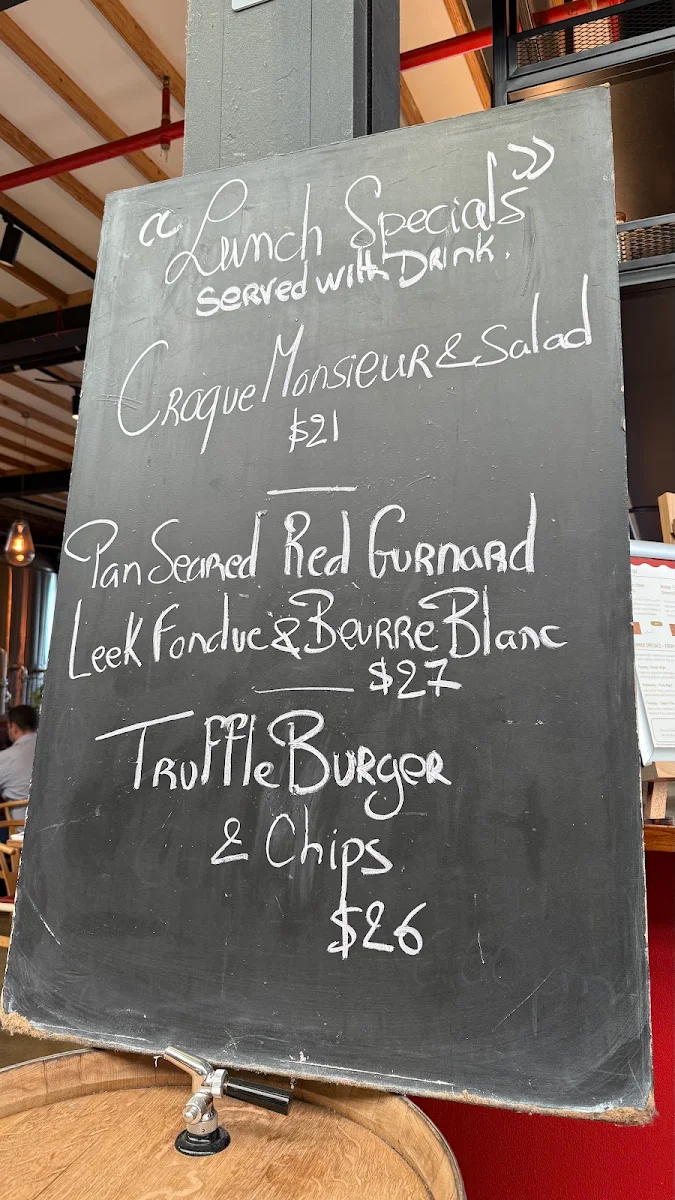 « Lunch Specials »
Served with Drink.
Croque Monsieur & Salad
$21
Pan Seared Red Gurnard
Leek Fondue & Beurre Blanc
$27
Truffle Burger
& Chips
$26